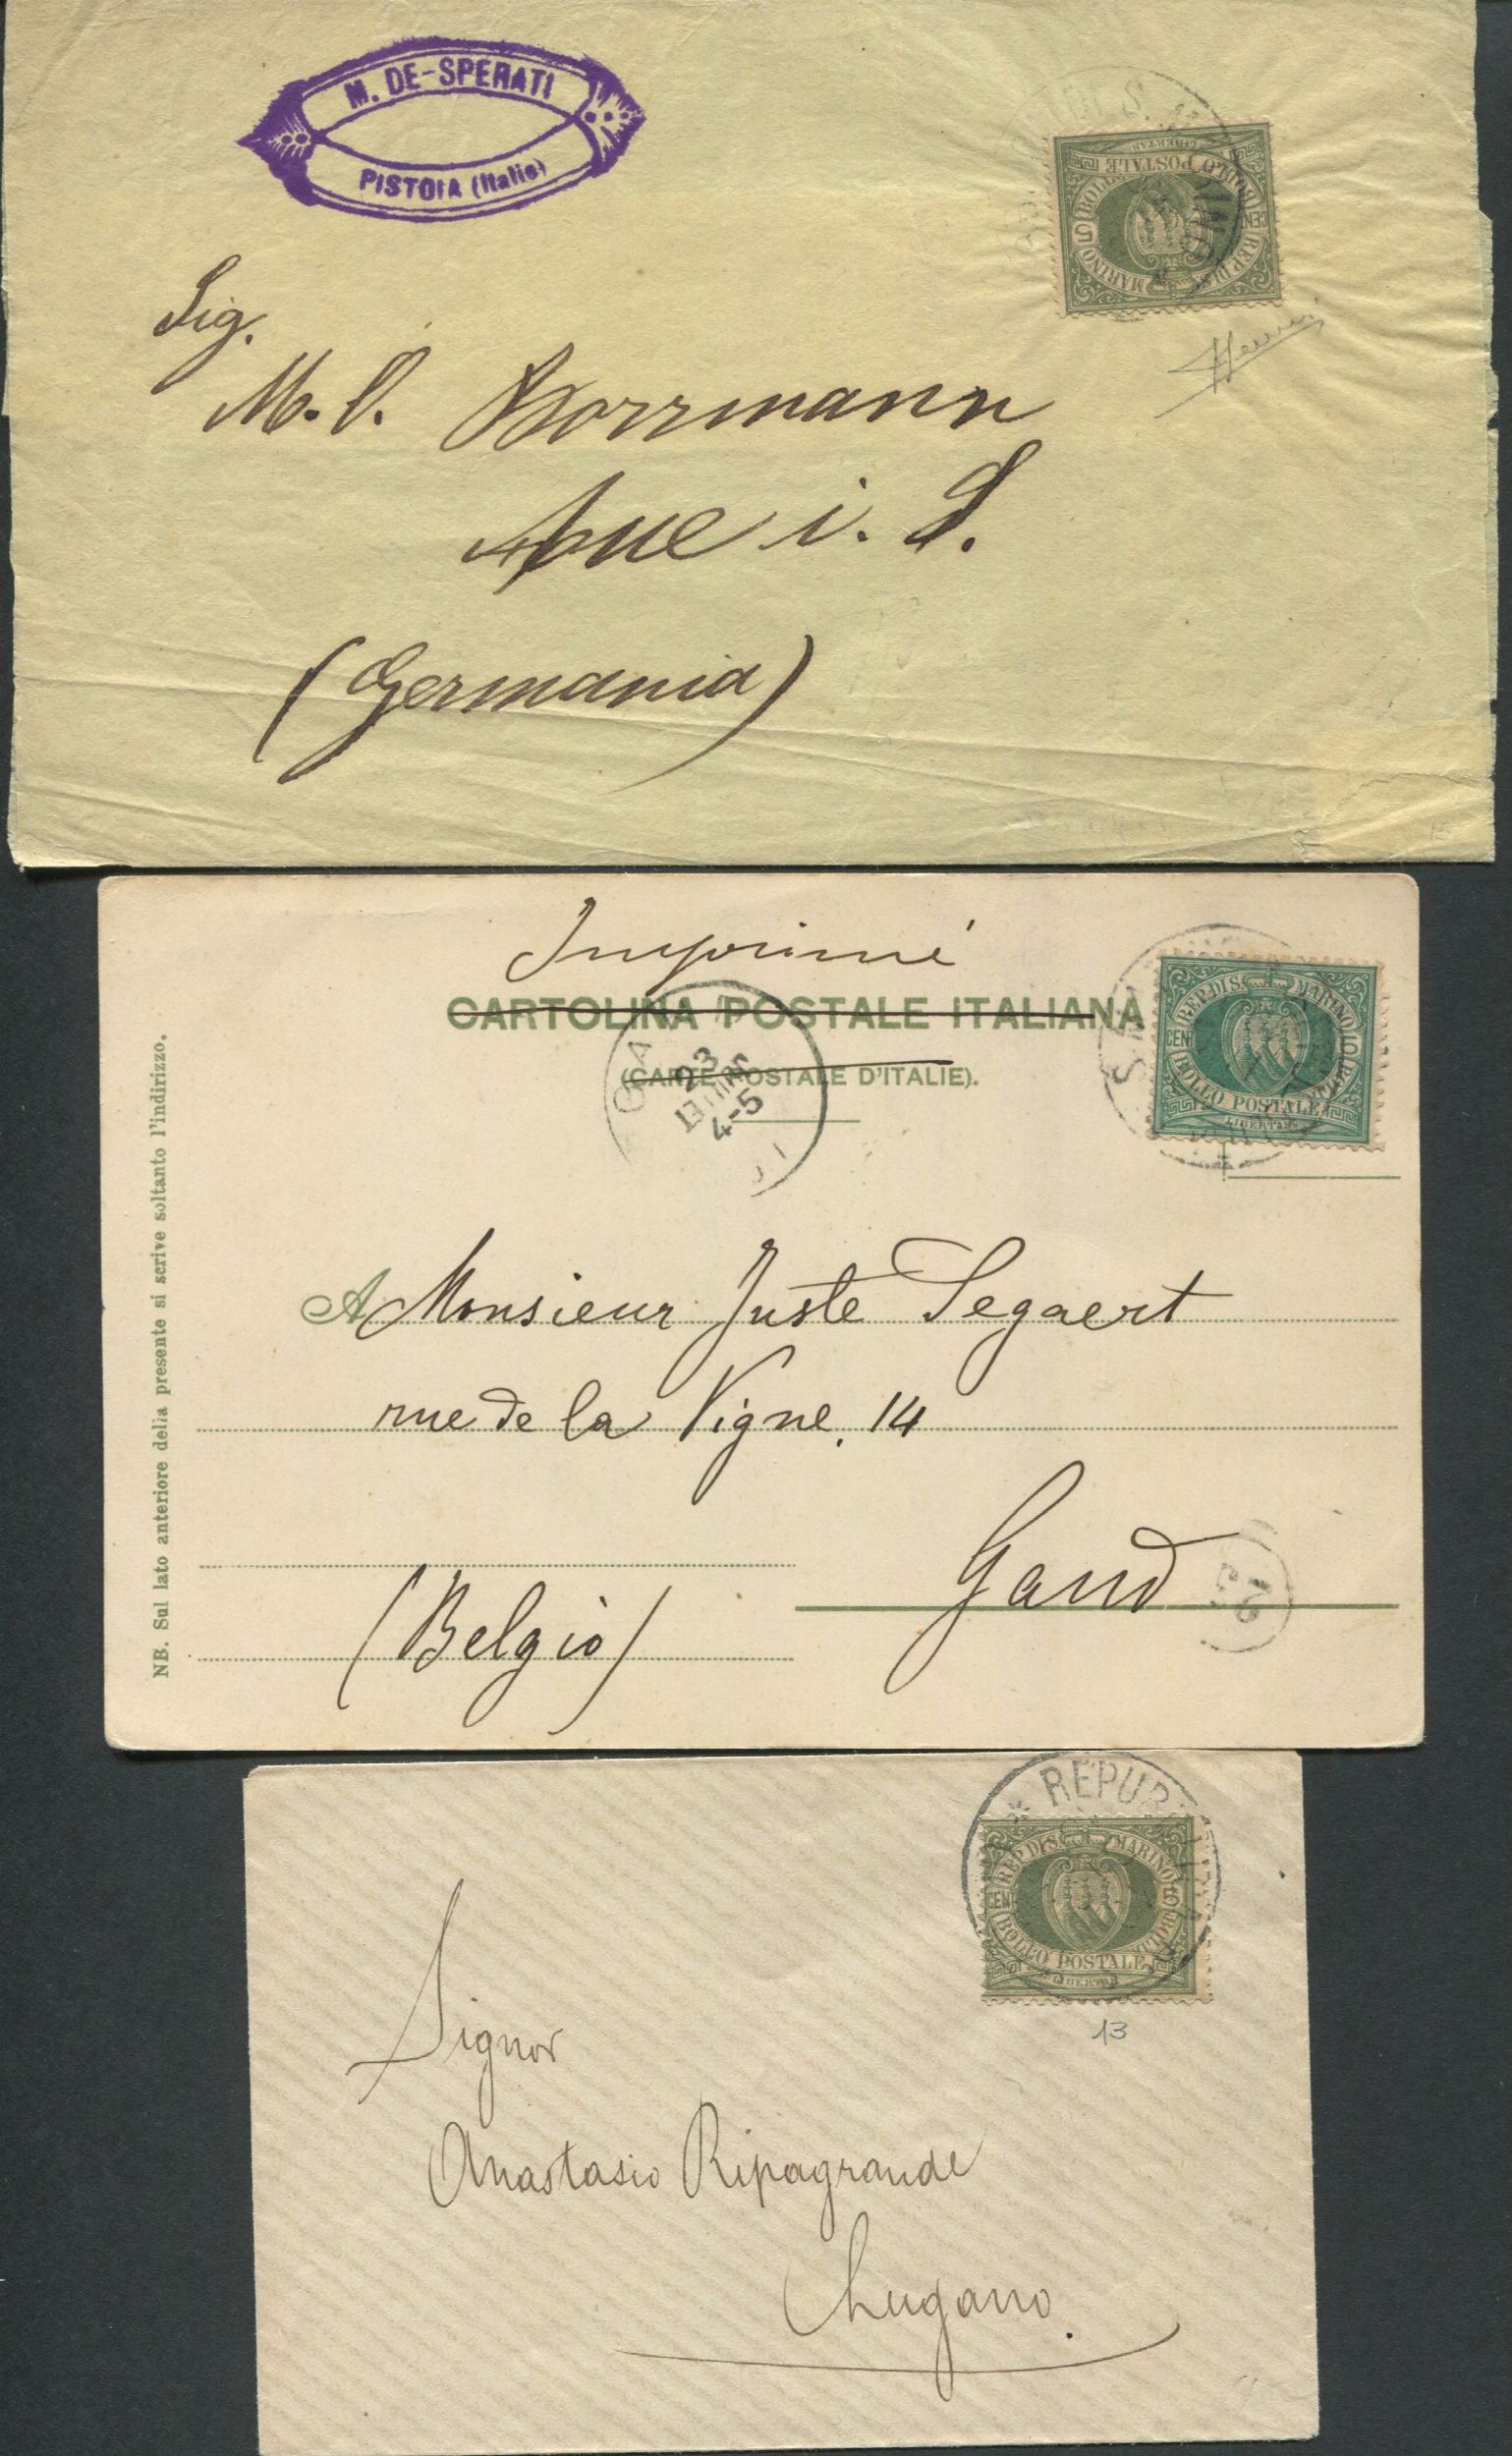 M. DE-SPERATI
PISTOIA (Italie)
DI S. M
REP. DI S. MARINO
CEN 5
BOLLO POSTALE
LIBERTAS
Sig.
M. C. Borrmann
Aue i. S.
(Germania)
Imprimé
CARTOLINA POSTALE ITALIANA
(CARTE POSTALE D'ITALIE).
23
4-5
REP. DI S. MARINO
CENT 5
BOLLO POSTALE
LIBERTAS
NB. Sul lato anteriore della presente si scrive soltanto l'indirizzo.
A Monsieur Juste Segaert
rue de la Vigne, 14
Gand
(Belgio)
* REPUB
REP. DI S. MARINO
CENT 5
BOLLO POSTALE
LIBERTAS
13
Signor
Anastasio Ripagrande
Lugano.